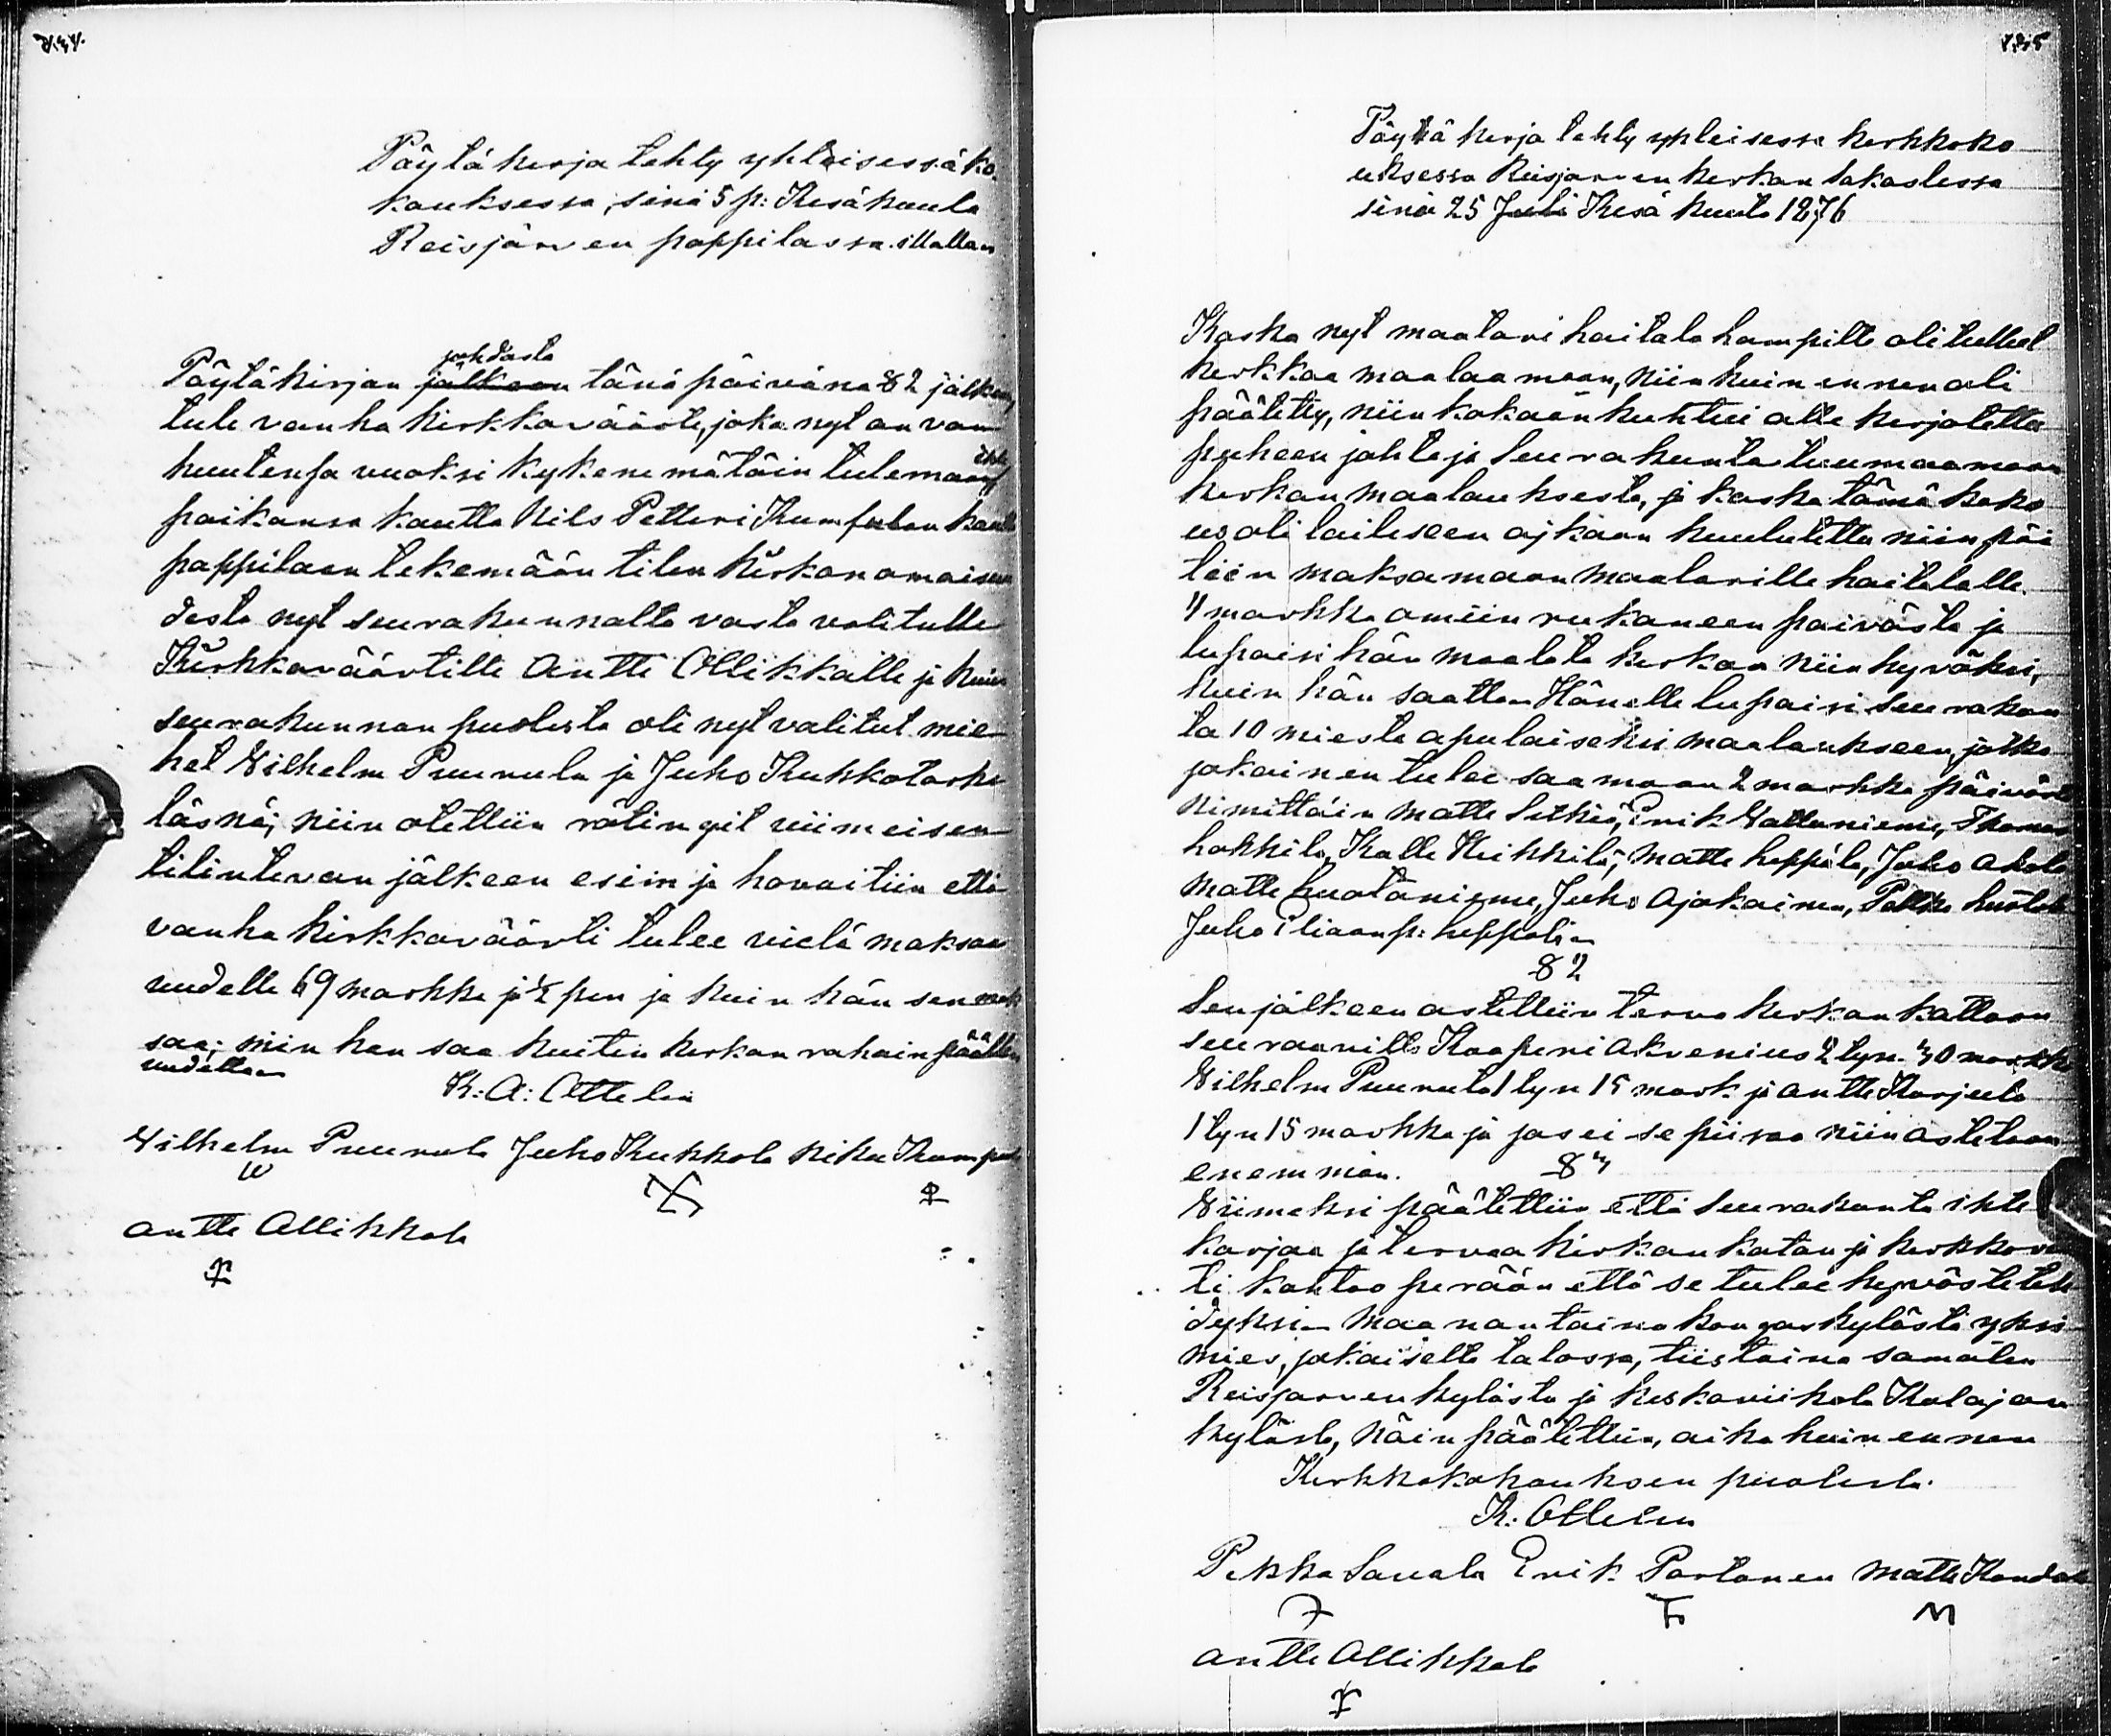 Pöytäkerja tehty yhteisessä ko-
kouksessa, sinä 5 p: Kesäkuuta
Reisjärven pappilassa illallan
Pöytäkirjan jälkeen johdosta tänä päivänä § 2 jälkeen
tule vanha kirkkoväärte, joka nyt on van
huutensa vuoksi kykenemätöin tulemaan
paikansa kautta Nils Petteri Kumpulan kautta
pappilaan tekemään tilin kirkon omaisuu
desta nyt seurakunnalta vasta valitulle
Kirkkoväärtille Antti Ollikkalle ja kuin
seurakunnan puolesta oli nyt valitut mie-
het Wilhelm Puurula ja Juho Kukkolaske
läsnä; niin otettiin rätingit viimeisen
tilintevan jälkeen esiin ja havaitiin että
vanha kirkkoväärti tulee vielä maksaa
uudelle 69 markka ja ½ pen ja kuin hän sen mak
saa; niin han saa kuitin kerkon rahain päälle
uudelta
K: A: Ottelin
Wilhelm Puurula Juho Kukkola Niku Kumpul
Antte Ollikkala
135
Pöytäkerja tehty ypleisessa kerkkoko
uksessa Reisjarven kerkon sakastessa
sinä 25 Juli Kesäkuuta 1876
Koska nyt maalari haitala hampilte oli tullut
kerkkoa maalaamaan, niin kuin ennen oli
päätetty, niin kokoon kuhtui alle kerjotettu
puheen johtaja Seurakunta tuumaamaan
kerkon maalauksesta, ja koska tämä koko
us oli lailiseen ajkaan kuulutettu niin pää
teen maksamaan maalarille haitalalle
4 markka omiin rukaneen paivästa ja
lupaisi hän maalata kerkon niin hyväksi,
kuin hän saattaa Hänelle lupaisi seurakun
ta 10 miestä apulaiseksi maalaukseen, jotka
jokainen tulee saamaan 2 markka päiväst
nimittäin Matte Sitkiö, Erik Vattuniemi, Thomas
hokkila, Kalle Heikkilä, Matte heppäla, Juho Ahola
Matte huotäniemi, Juho Ajokainen, Pekka hustola
Juho Eliaanp: heppolin
§ 2
Sen jälkeen astettiin terva kerkon kattoon
seuraavilts Kaaperi Akvenius 2 tyn. 30 markk
Wilhelm Puurula 1 tyn 15 mark ja Antte Karjula
1 tyn 15 markka ja jos ei se piisaa niin astetaan
enemmän. § 3
Wiimeksi päätettiin että Seurakunta ihte
karjaa ja tervaa kirkon katon ja kerkkov
ti kahtoo perään että se tulee hyväste teh
dyksi. Maanantaina kangaskylästä yksi
mies, jokaiselta talossa, tiistaina samaten
Reisjarven kylästa ja keskoviikola Kalajan
kyläsla, näin päätettiin, aika kuin ennen
Kerkkokokouksen puolesta.
K: Ottelin
Pekka Sauala Erik Partanen Matti Kandola
M
Antte Ollikkala